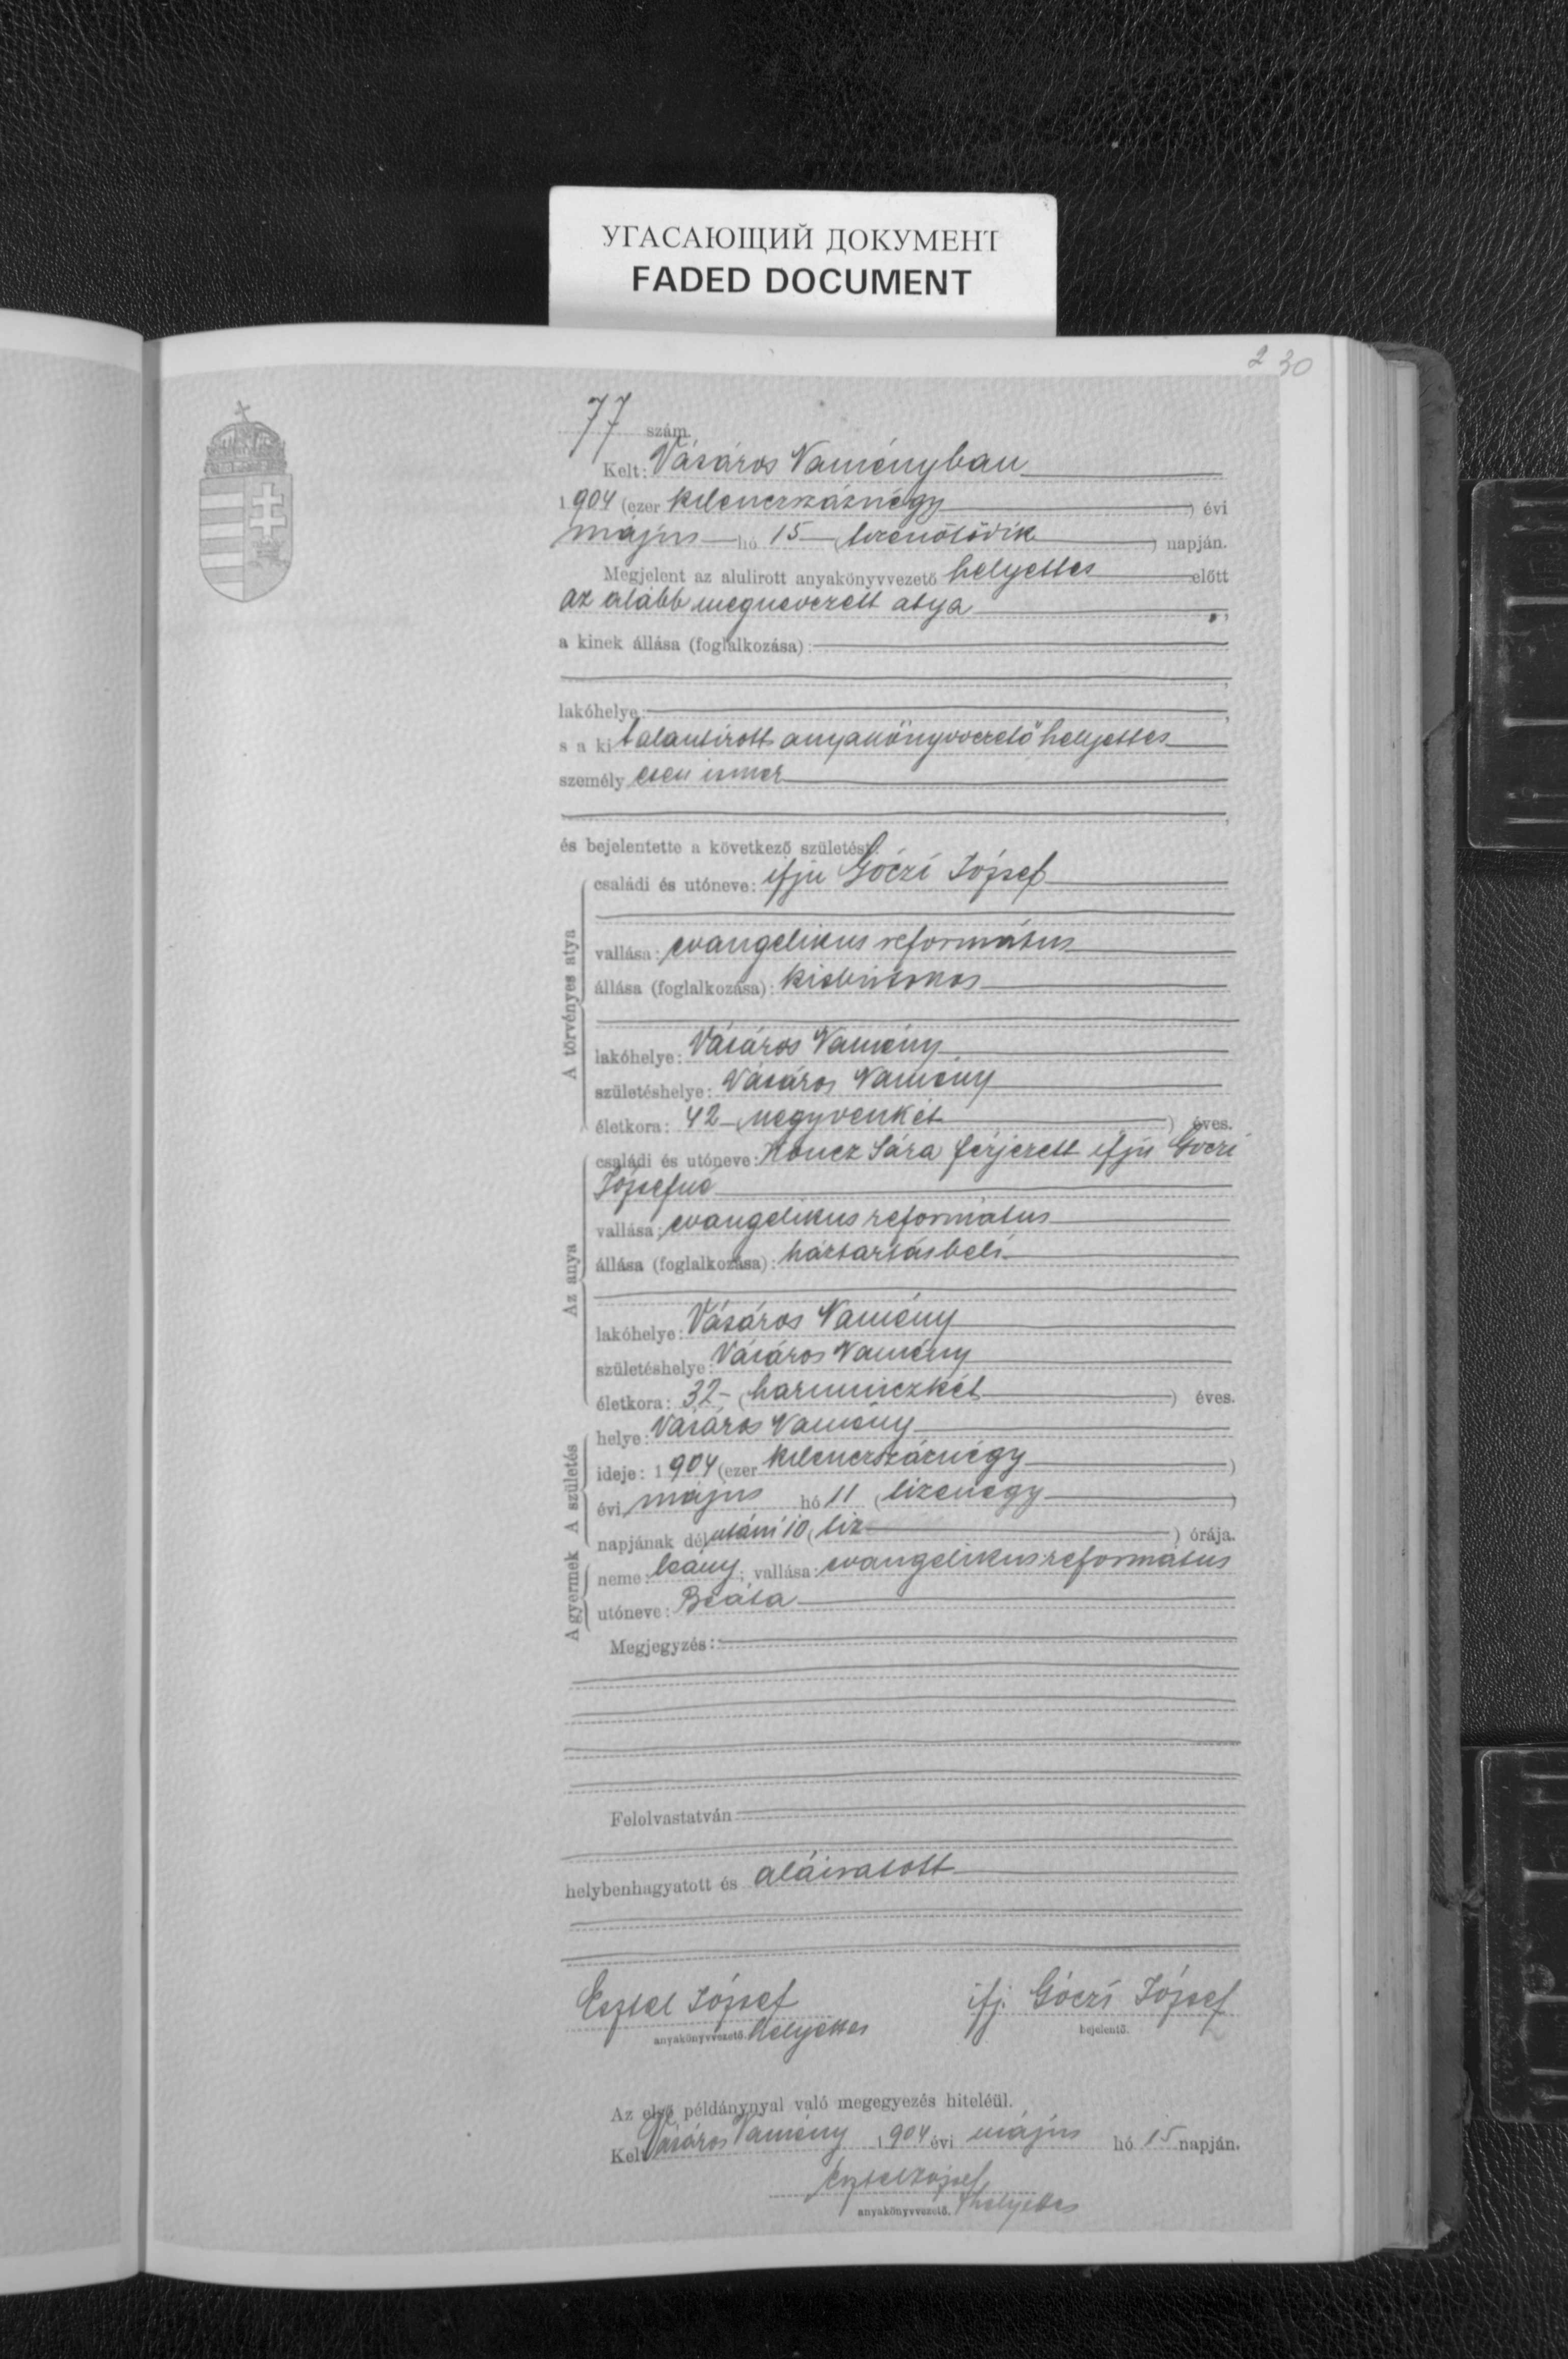 УГАСАЮЩИЙ ДОКУМЕНТ
FADED DOCUMENT
2 30
77 szám.
Kelt: Vásáros Naményban
1904 (ezer kilenczszáznégy) évi
május hó 15 (tizenötödik) napján.
Megjelent az alulirott anyakönyvvezető helyettes előtt
az alább megnevezett atya,
a kinek állása (foglalkozása):
lakóhelye:
s a ki t alantirott anyakönyvvezető helyettes
személyesen ismer
és bejelentette a következő születést:
A törvényes atya
családi és utóneve: ifjú Góczi József
vallása: evangelikus református
állása (foglalkozása): kisbirtokos
lakóhelye: Vásáros Namény
születéshelye: Vásáros Namény
életkora: 42 (negyvenkét) éves.
Az anya
családi és utóneve: Koncz Sára férjezett ifjú Góczi
Józsefné
vallása: evangelikus református
állása (foglalkozása): háztartásbeli
lakóhelye: Vásáros Namény
születéshelye: Vásáros Namény
életkora: 32 (harminczkét) éves.
A születés
helye: Vásáros Namény
ideje: 1904 (ezer kilenczszáznégy)
évi május hó 11 (tizenegy)
napjának délutáni 10 (tiz) órája.
A gyermek
neme: leány; vallása: evangelikus református
utóneve: Beáta
Megjegyzés:
Felolvastatván
helybenhagyatott és aláiratott
József ifj. Góczi József
anyakönyvvezető. helyettes bejelentő.
Az első példánynyal való megegyezés hiteléül.
Kelt Vásáros Namény 1904 évi május hó 15 napján.
József
anyakönyvvezető. helyettes